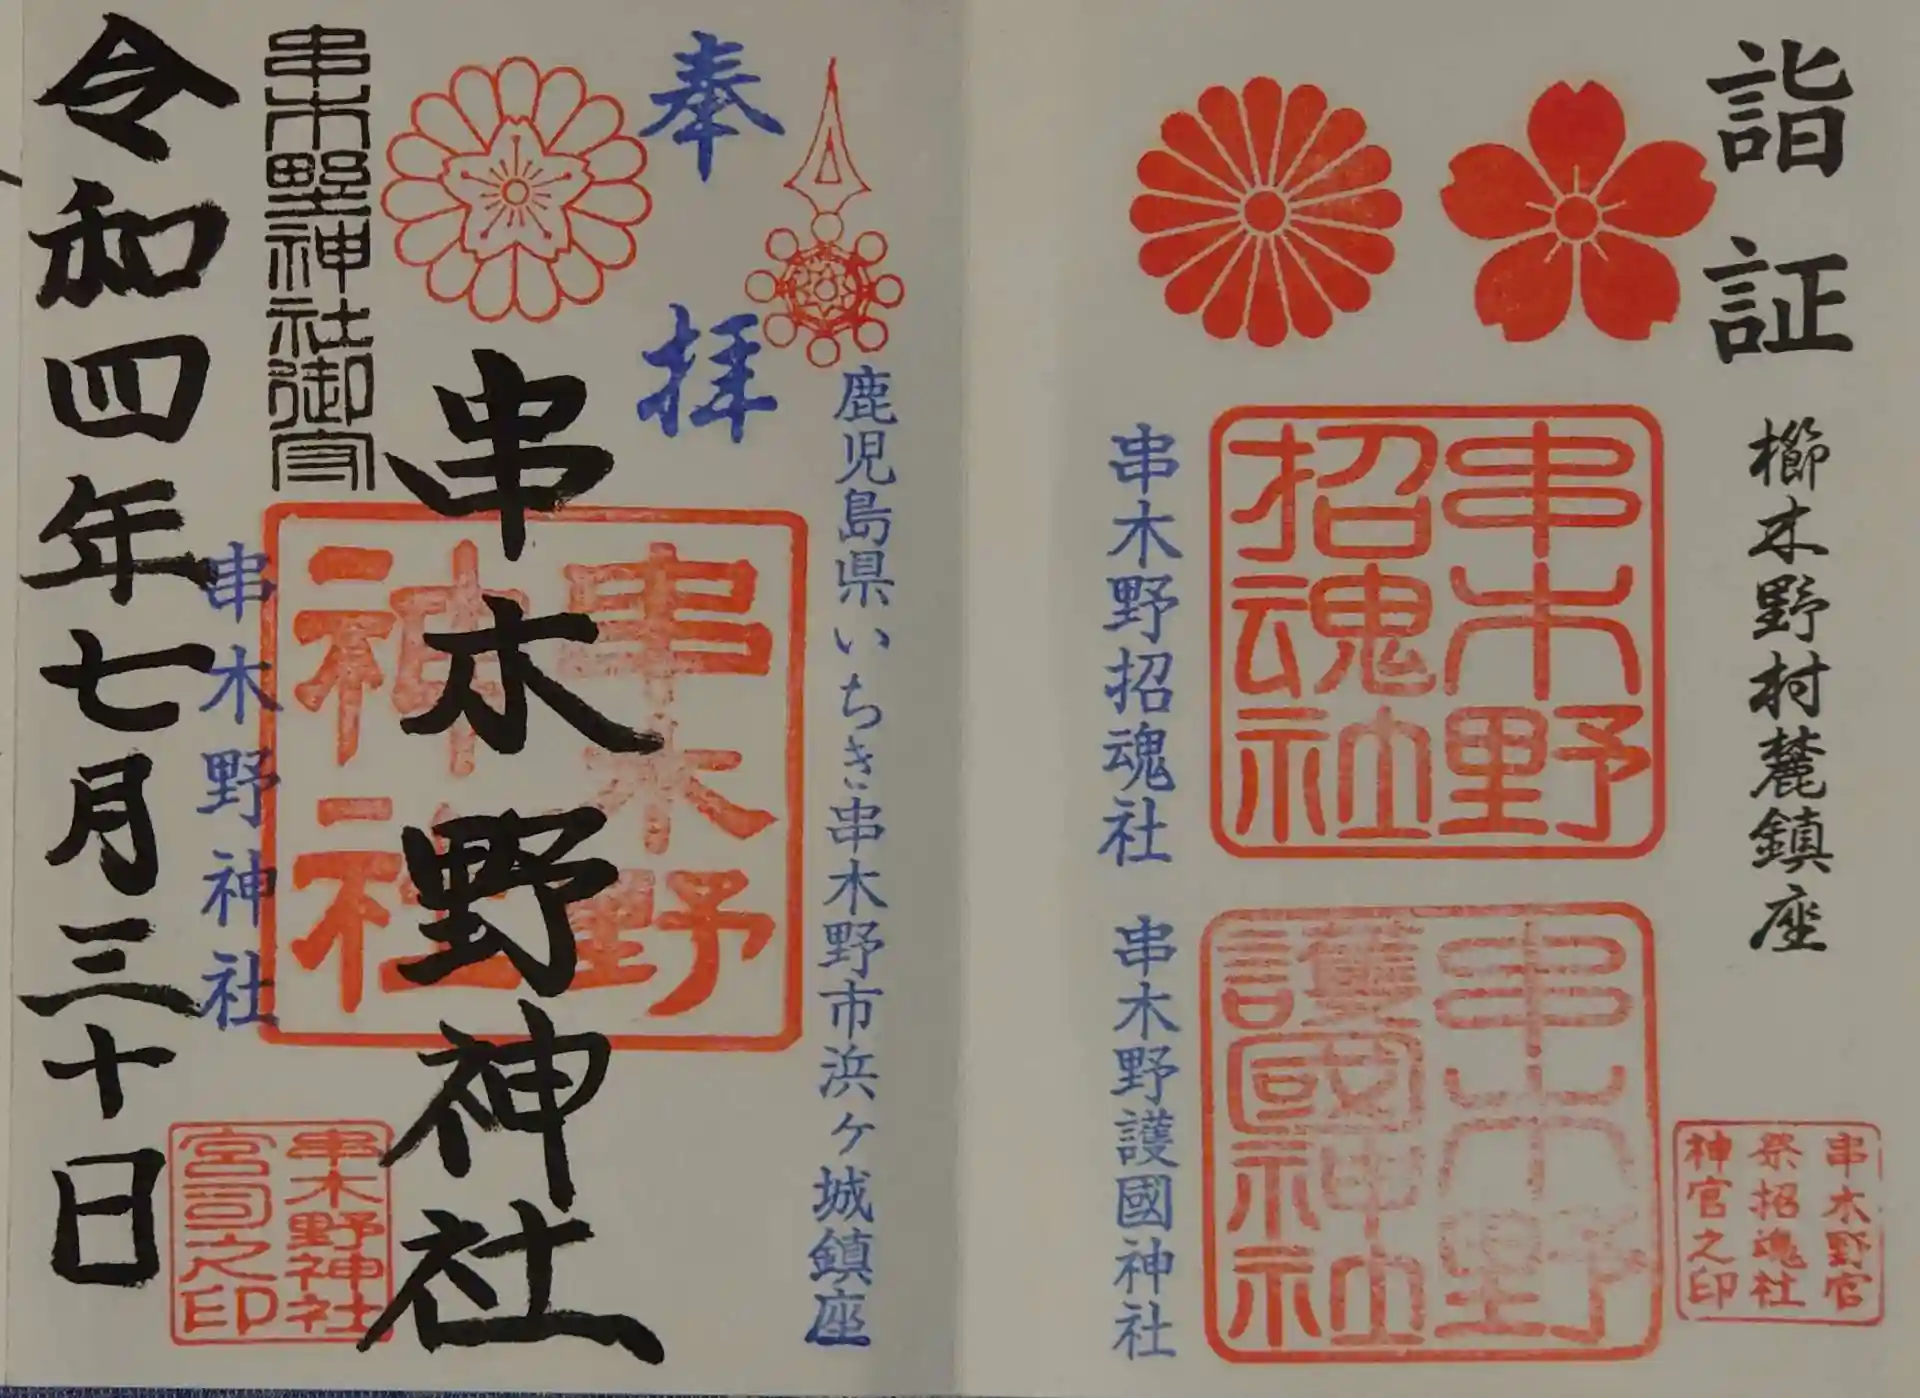 詣証
櫛木野村麓鎮座
串木野招魂社
串木野招魂社
串木野護國神社
串木野護國神社
串木野官
祭招魂社
神官之印
奉拝
鹿児島県いちき串木野市浜ヶ城鎮座
串木野神社
串木野
神社
串木野神社御守
串木野神社
串木野神社
宮司之印
令和四年七月三十日